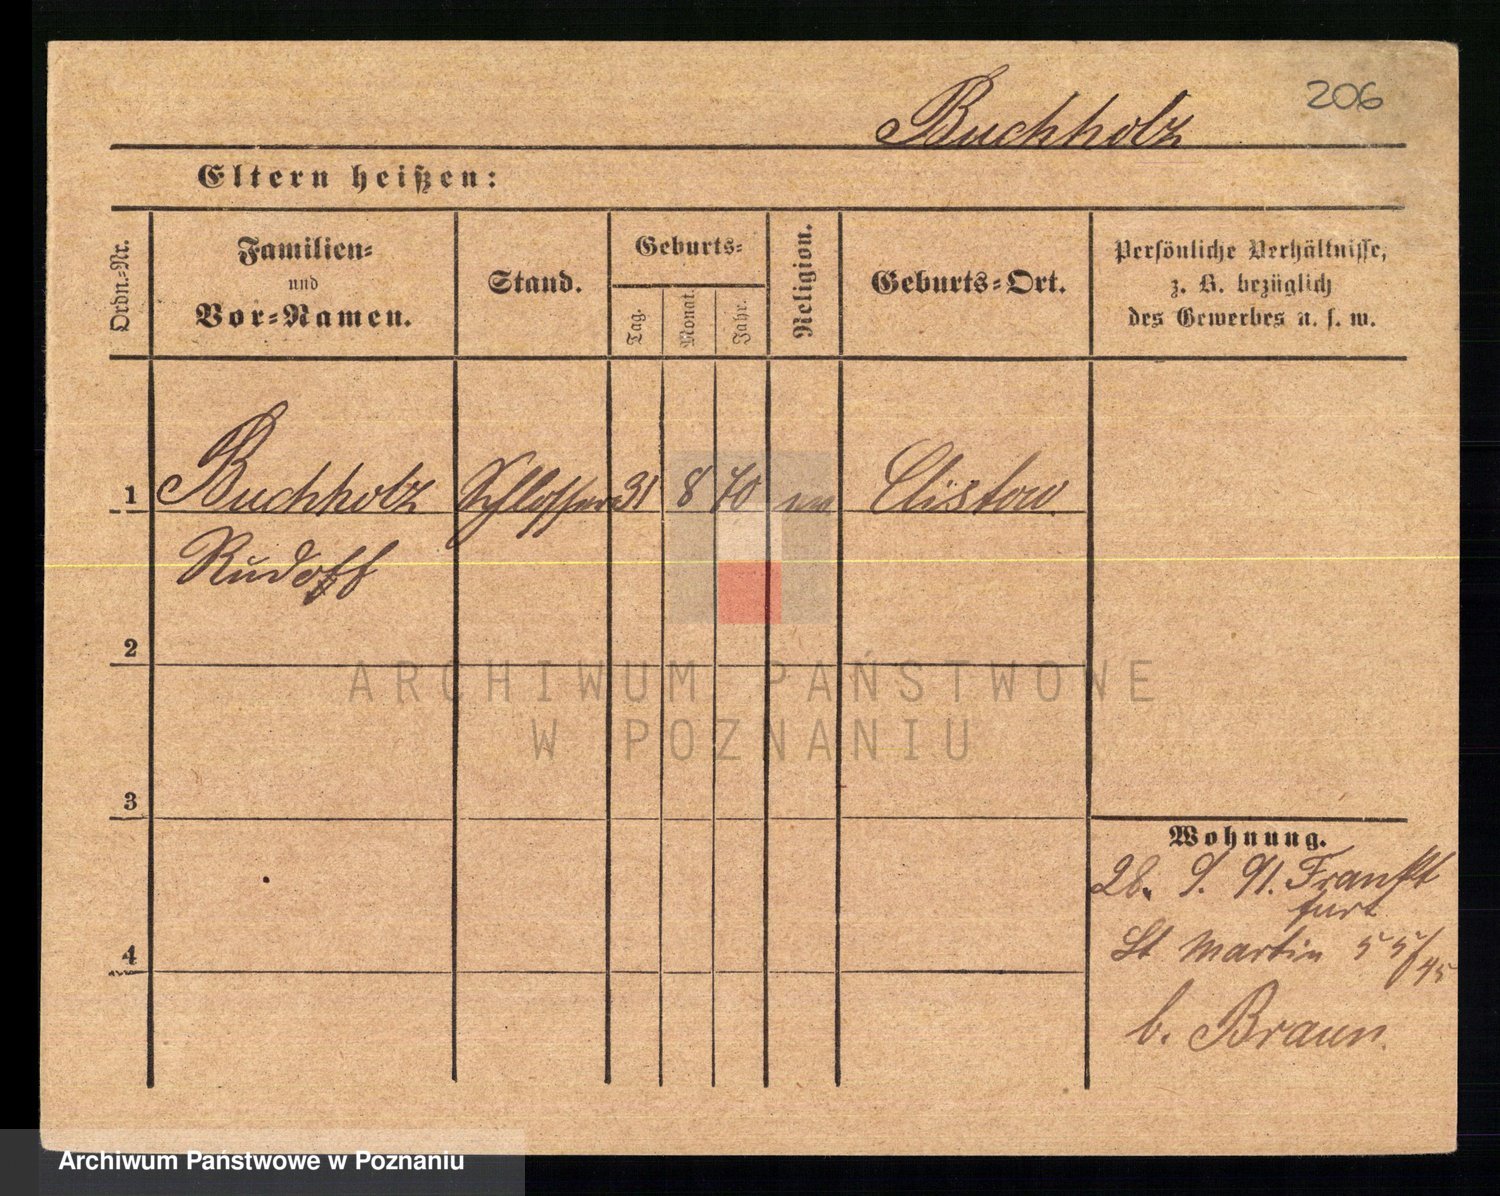 206
Buchholz
Eltern heißen:
Ordn.-Nr.
Familien-
und
Vor-Namen.
Stand.
Geburts-
Tag.
Monat.
Jahr.
Religion.
Geburts-Ort.
Persönliche Verhältnisse,
z. B. bezüglich
des Gewerbes u. s. w.
1 Buchholz Schlosser 31 8 70
Rudolf
2
3
4
Wohnung.
28. 9. 91. Frankft
furt
St Martin 55/45
b. Braun.
ARCHIWUM PAŃSTWOWE
W POZNANIU
Archiwum Państwowe w Poznaniu